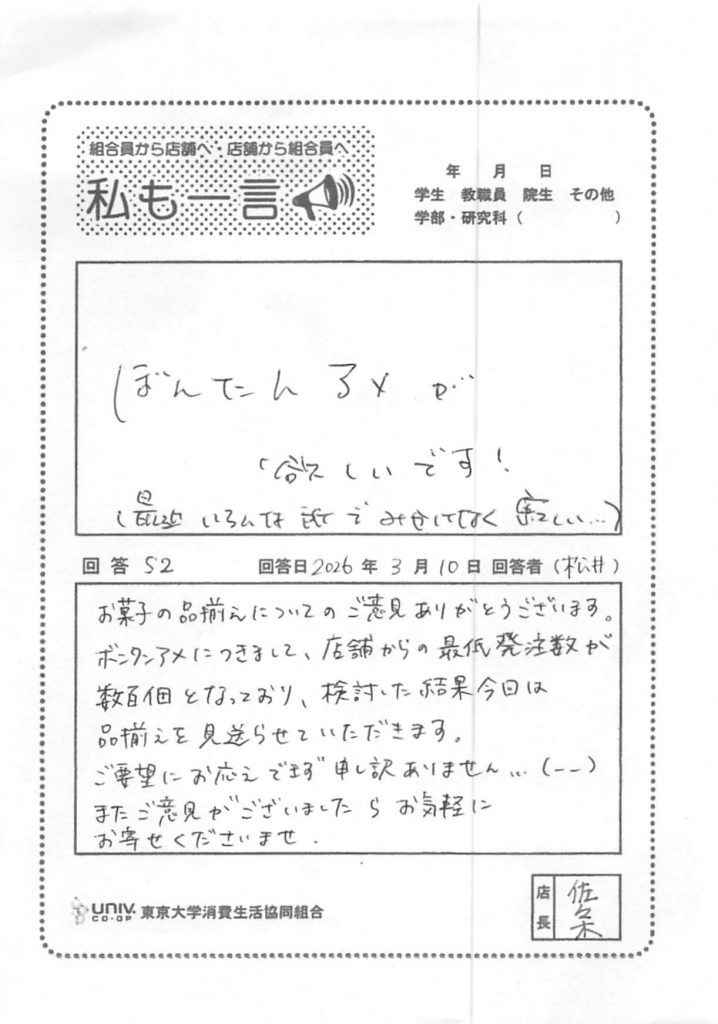 組合員から店舗へ・店舗から組合員へ
私も一言
年 月 日
学生 教職員 院生 その他
学部・研究科 ( )
ぼんたんアメが
欲しいです!
(最近いろんな所でみかけなく寂しい…)
回答 52 回答日 2026年 3月 10日 回答者 (松井)
お菓子の品揃えについてのご意見ありがとうございます。
ボンタンアメにつきまして、店舗からの最低発注数が
数百個となっており、検討した結果今回は
品揃えを見送らせていただきます。
ご要望にお応えできず申し訳ありません…(--)
またご意見がございましたらお気軽に
お寄せくださいませ.
UNIV. CO-OP 東京大学消費生活協同組合
店長 佐々木